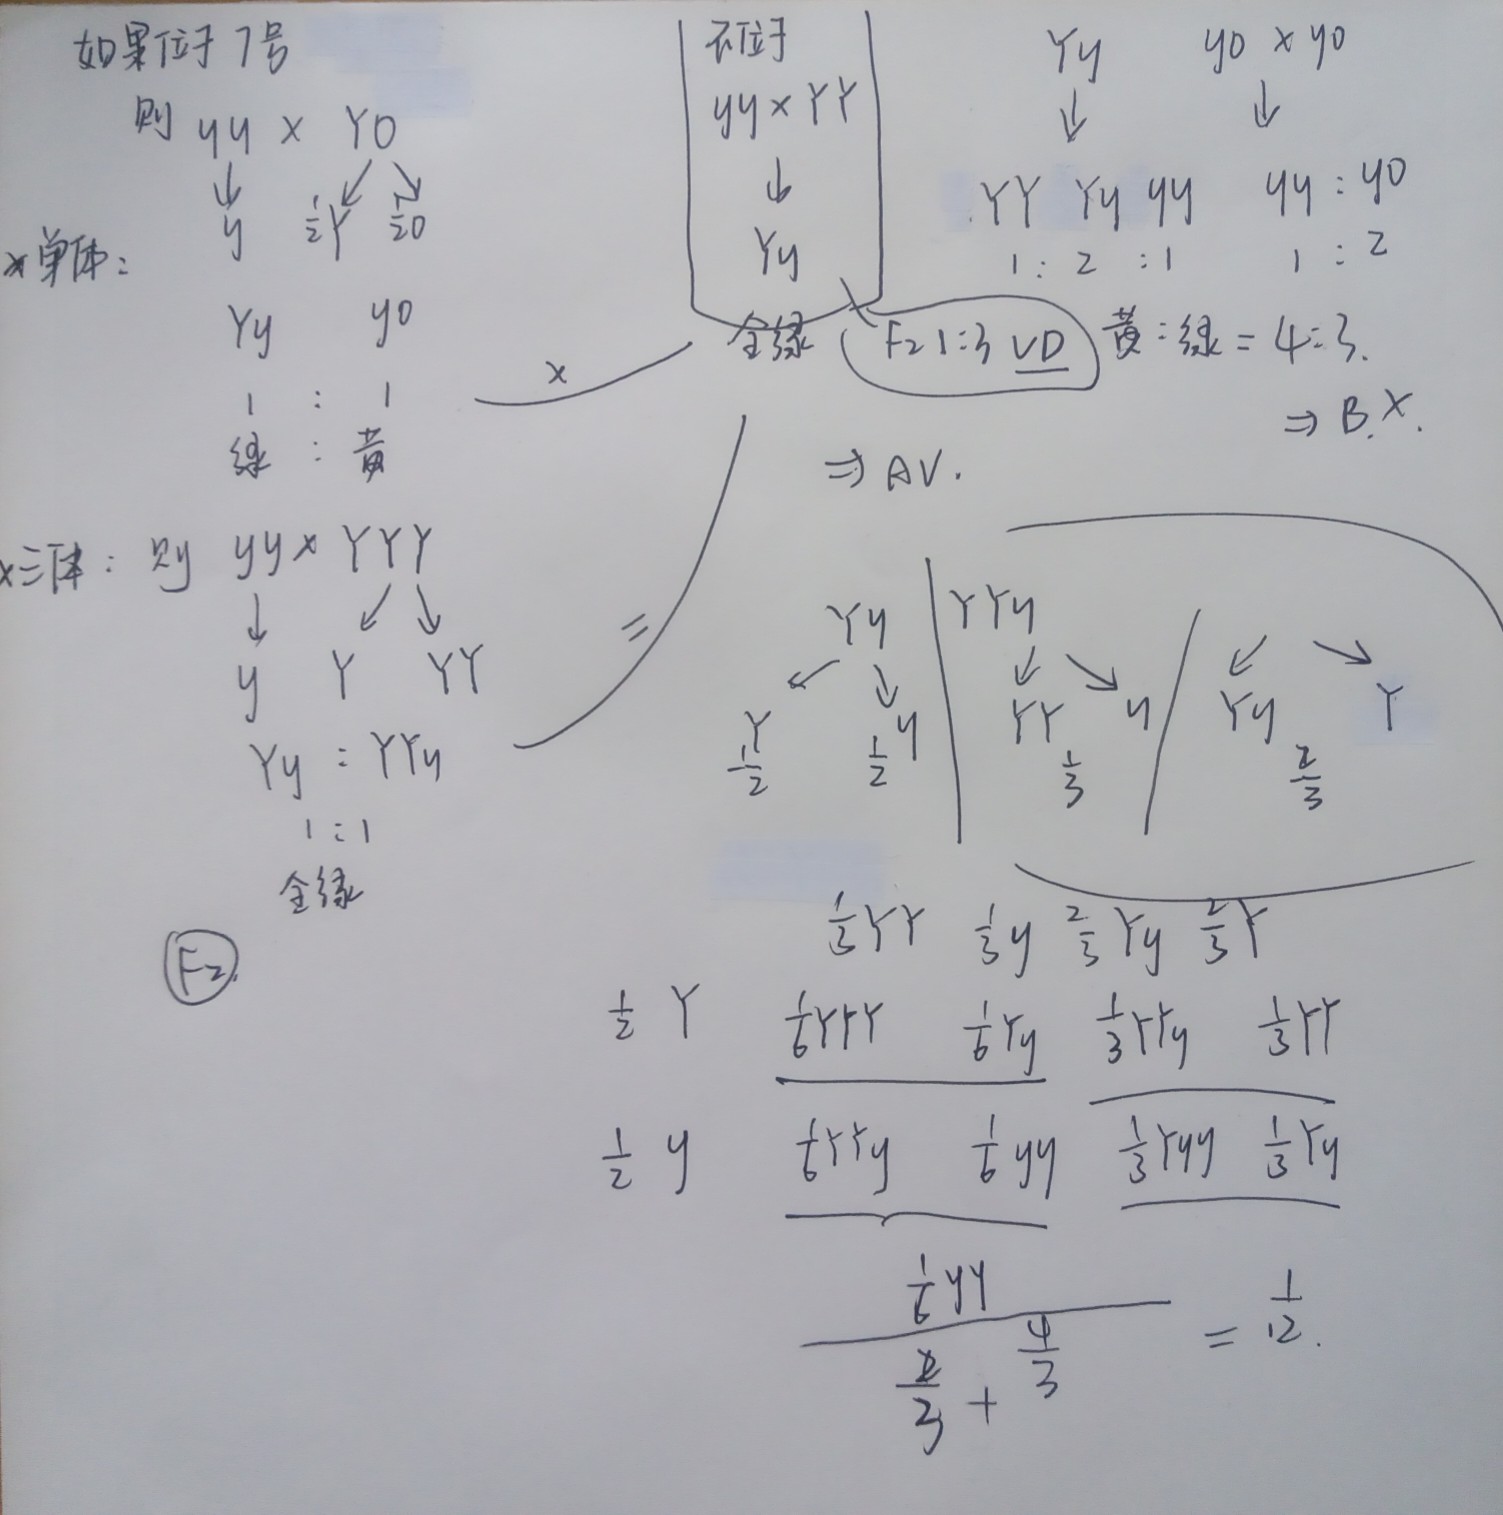 如果位于7号
则 yy × YO
↓ ↙ ↘
y ½Y ½O
×单体:
Yy yo
1 : 1
绿 : 黄
×三体: 则 yy × YYY
↓ ↙ ↘
y Y YY
Yy : YYy
1:1
全绿
F₂
不位于
yy × YY
↓
Yy
全绿
×
=
F₂ 1:3 VD
⇒ AV.
Yy yo × yo
↓ ↓
YY Yy yy yy : yo
1 : 2 : 1 1 : 2
黄:绿 = 4:3.
⇒ B.×.
Yy YYy
↙ ↘ ↙ ↘ ↙ ↘
Y y YY y Yy Y
1/2 1/2 1/3 2/3
1/3YY 1/3y 2/3Yy 2/3Y
1/2 Y 1/6YYY 1/6Yy 1/3YYy 1/3YY
1/2 y 1/6YYy 1/6yy 1/3Yyy 1/3Yy
1/6yy
= 1/12.
2/3 + 4/3